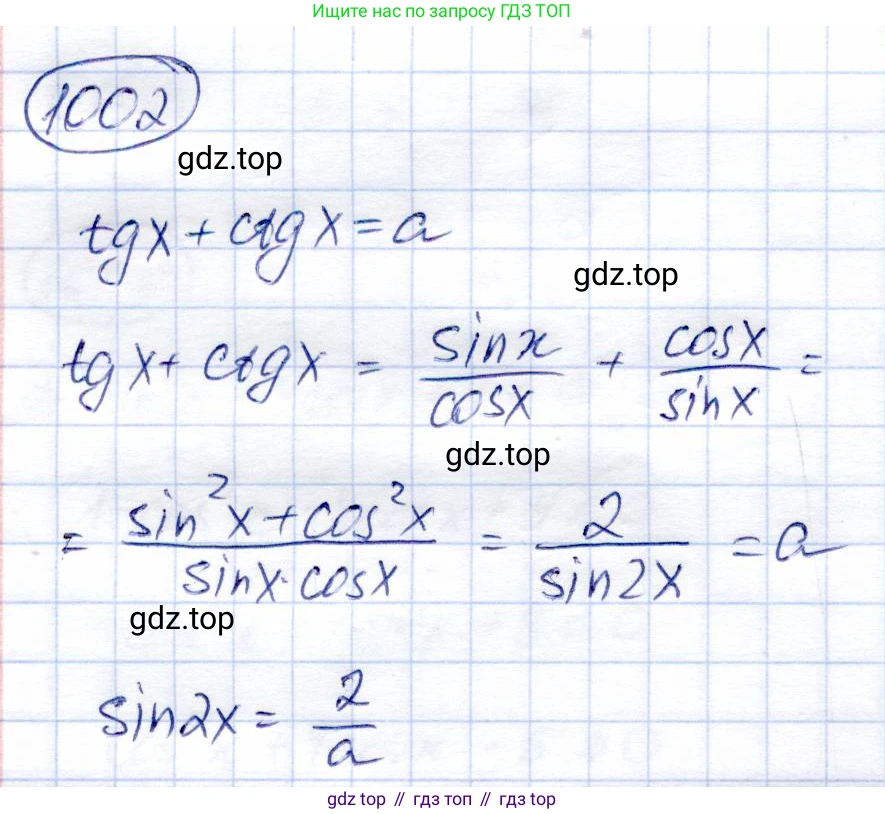 Ищите нас по запросу ГДЗ ТОП
1002
gdz.top
tgx + ctgx = a
gdz.top
tgx + ctgx = sinx/cosx + cosx/sinx =
gdz.top
= sin²x + cos²x/sinx·cosx = 2/sin2x = a
gdz.top
sin2x = 2/a
gdz top // гдз топ // gdz top